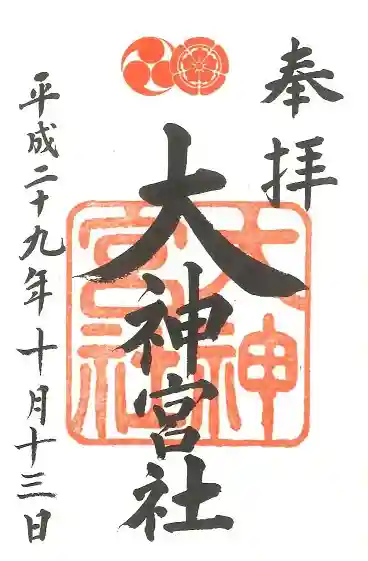 奉拝
大神宮社
大神宮社
平成二十九年十月十三日